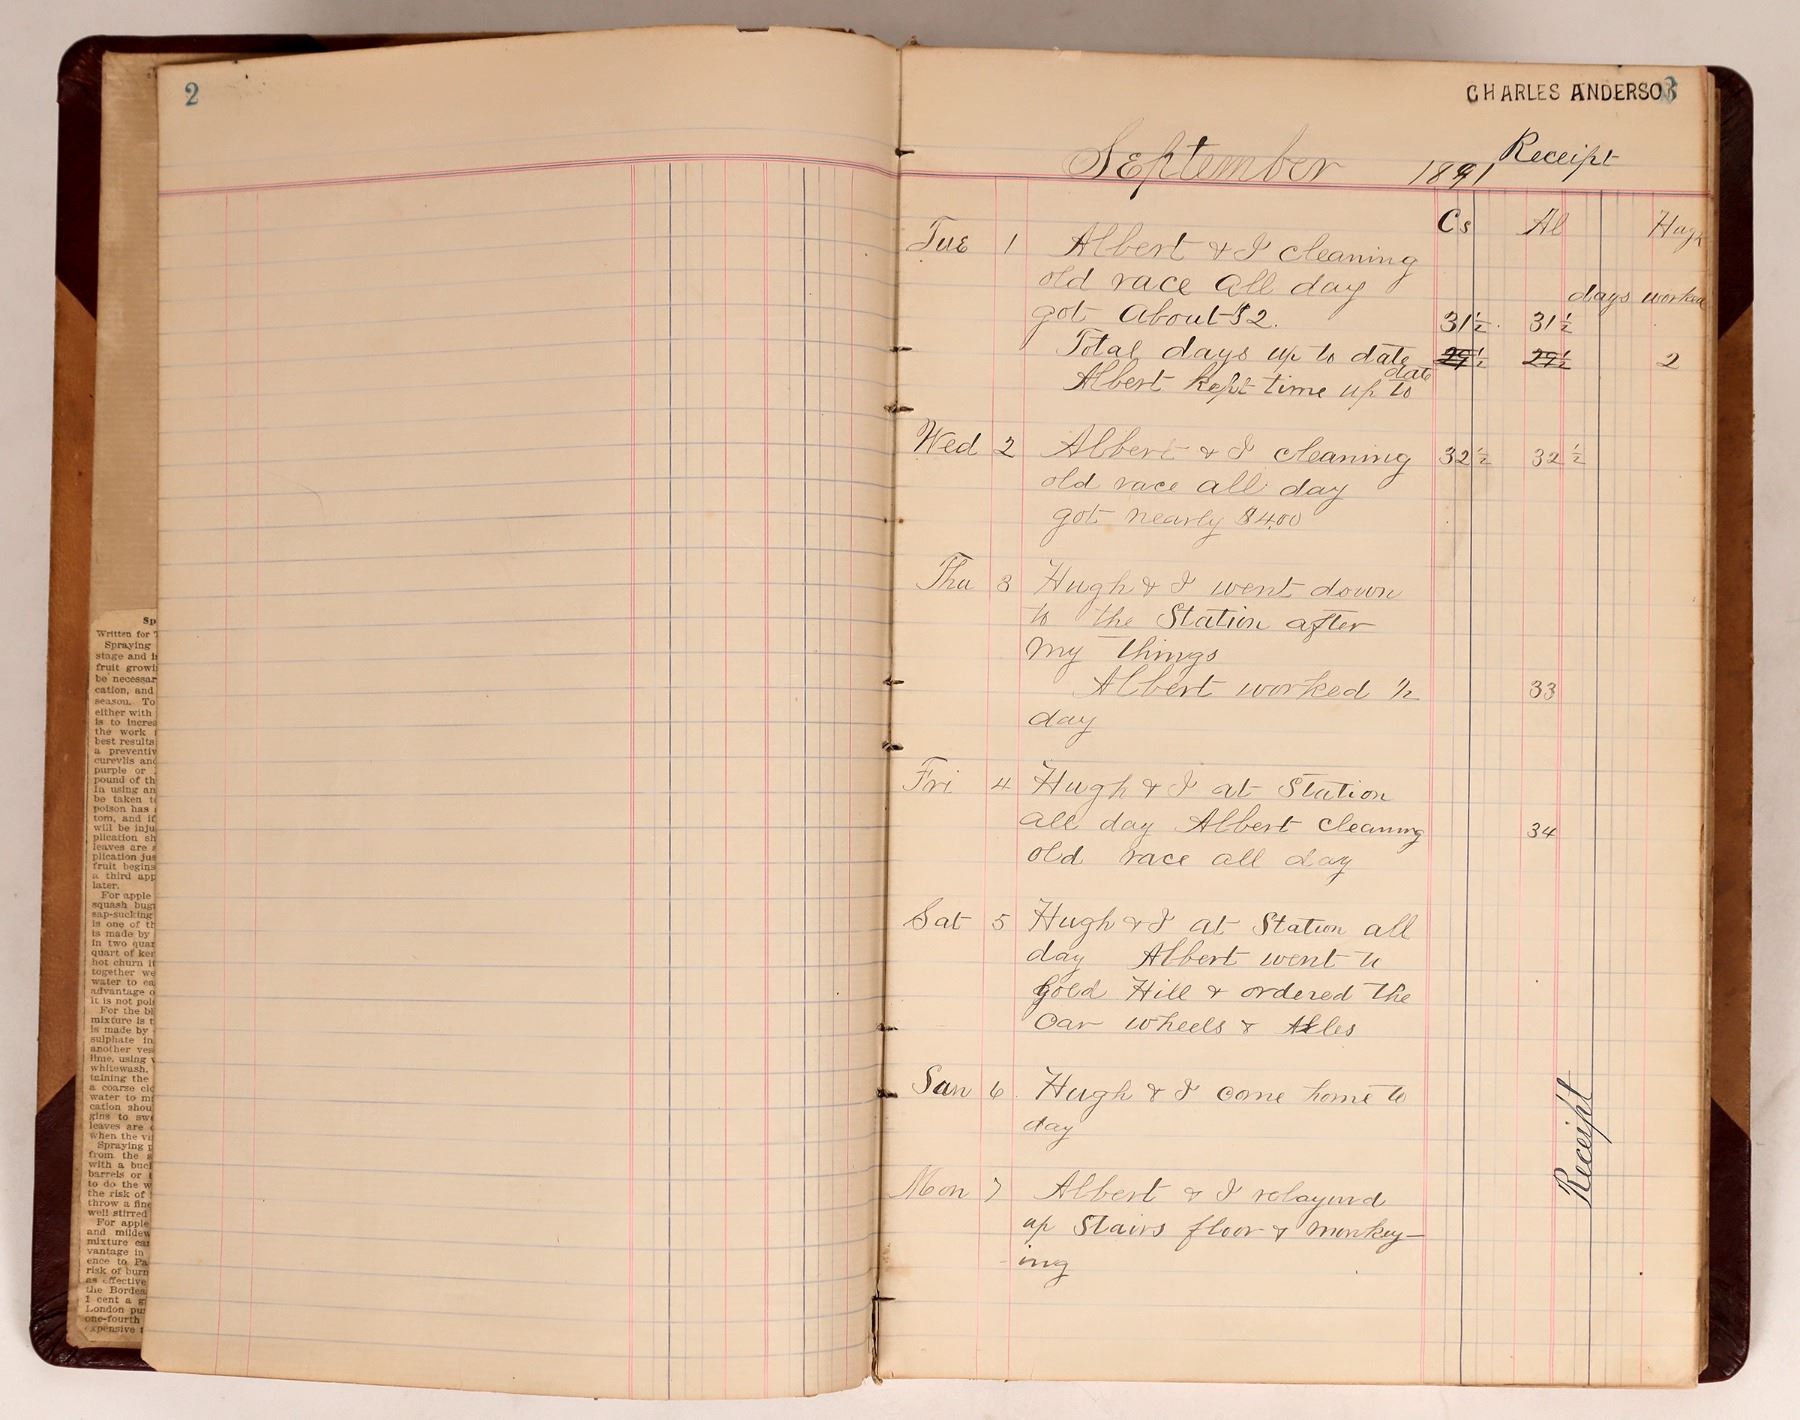 2
Sp
Written for T
Spraying
stage and i
fruit growi
be necessar
cation, and
season. To
either with
is to increa
the work
best results
a preventiv
curevlis and
purple or
pound of th
In using an
be taken t
poison has
tom, and if
will be inju
plication sh
leaves are
plication jus
fruit begins
a third app
later.
For apple
squash bug
sap-sucking
is one of th
is made by
in two quar
quart of ker
hot churn it
together we
water to ea
advantage o
it is not pois
For the bl
mixture is t
is made by
sulphate in
another ves
lime, using
whitewash.
taining the
a coarse clo
water to m
cation shou
gins to swe
leaves are
when the vi
Spraying p
from the s
with a buc
barrels or
to do the w
the risk of
throw a fine
well stirred
For apple
and mildew
mixture ca
vantage in
ence to Pa
risk of burn
as effective
the Bordea
1 cent a g
London pu
one-fourth
expensive
CHARLES ANDERSON
3
September 1891 Receipt
Cs Al Hugh
Tue 1 Albert & I cleaning
old race all day
days worked
got about $2. 31½ 31½
Total days up to date 29½ 29½ 2
Albert kept time up to date
Wed 2 Albert & I cleaning 32½ 32½
old race all day
got nearly $4.00
Thu 3 Hugh & I went down
to the Station after
my things
Albert worked ½ 33
day
Fri 4 Hugh & I at Station
all day Albert cleaning 34
old race all day
Sat 5 Hugh & I at Station all
day Albert went to
Gold Hill & ordered the
Car wheels & Axles
Sun 6 Hugh & I come home to
day
Receipt
Mon 7 Albert & I
up Stairs floor & monkey-
ing